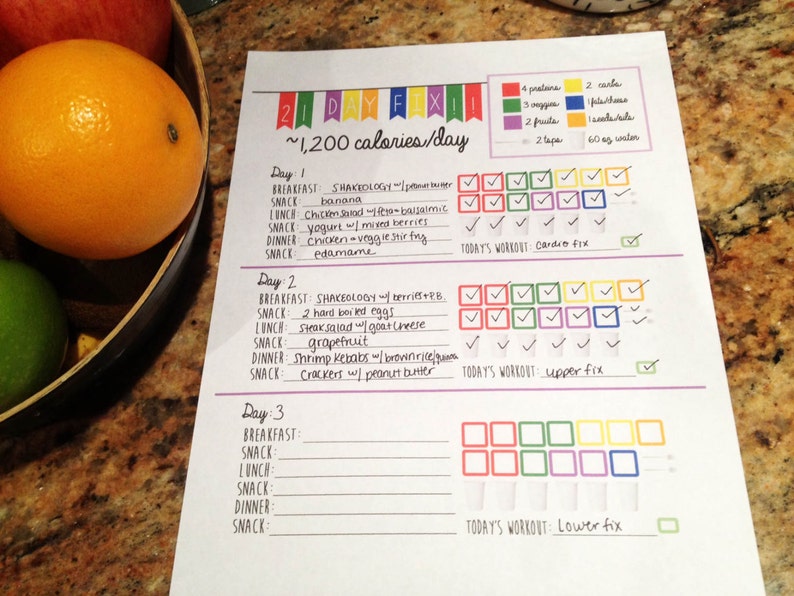 21 DAY FIX!!
~1,200 calories/day
4 proteins
2 carbs
3 veggies
1 fats/cheese
2 fruits
1 seeds/oils
2 tsps
60 oz water
Day: 1
BREAKFAST: SHAKEOLOGY w/ peanut butter
SNACK: banana
LUNCH: chicken salad w/ feta + balsalmic
SNACK: yogurt w/ mixed berries
DINNER: chicken + veggie stir fry
SNACK: edamame
TODAY'S WORKOUT: Cardio fix
Day: 2
BREAKFAST: SHAKEOLOGY w/ berries + P.B.
SNACK: 2 hard boiled eggs
LUNCH: steak salad w/ goat cheese
SNACK: grapefruit
DINNER: shrimp kebabs w/ brown rice/quinoa
SNACK: crackers w/ peanut butter
TODAY'S WORKOUT: upper fix
Day: 3
BREAKFAST:
SNACK:
LUNCH:
SNACK:
DINNER:
SNACK:
TODAY'S WORKOUT: Lower fix